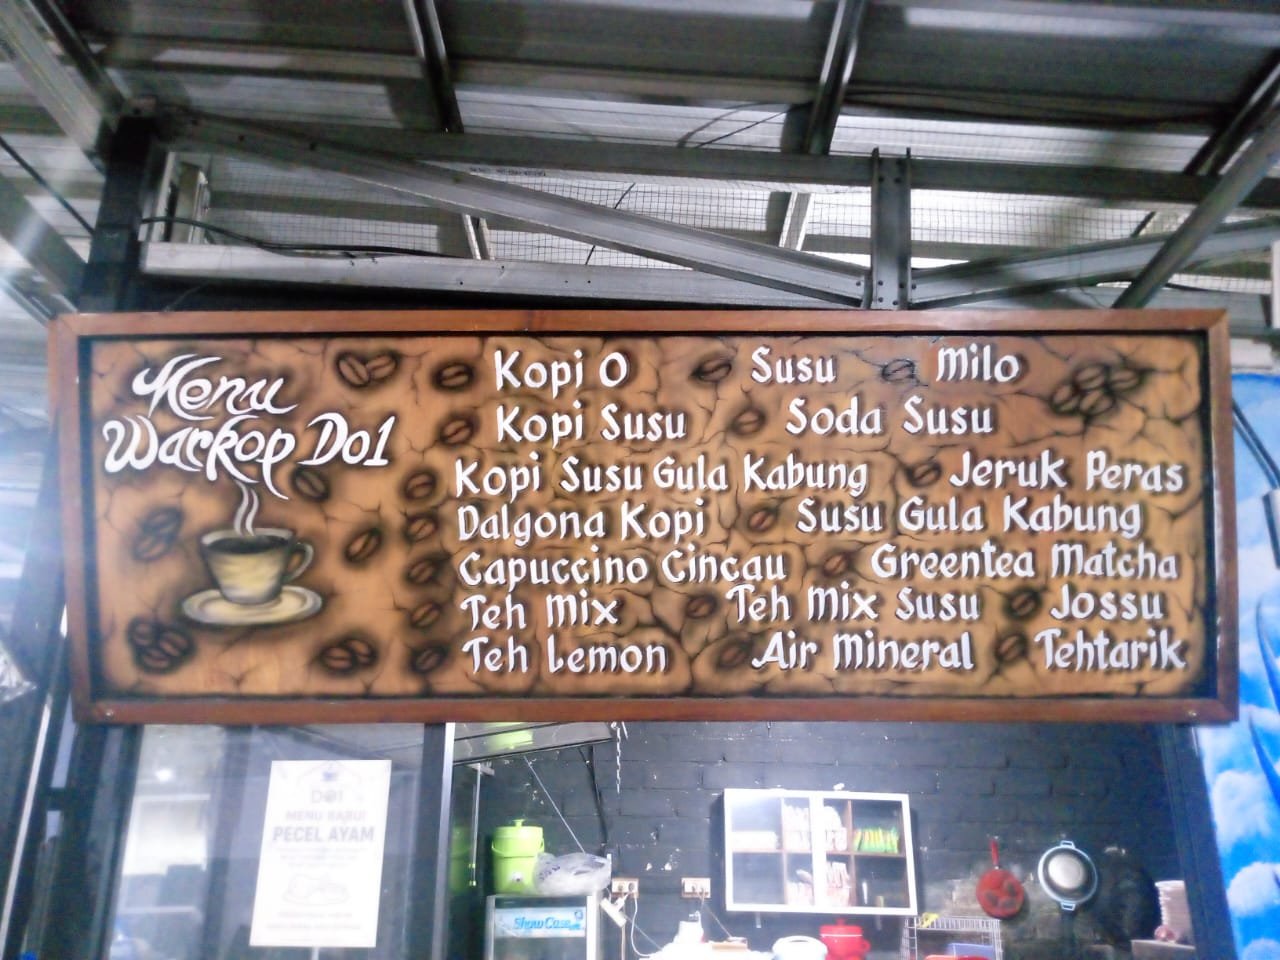 Menu
Warkop Do1
Kopi O Susu Milo
Kopi Susu Soda Susu
Kopi Susu Gula Kabung Jeruk Peras
Dalgona Kopi Susu Gula Kabung
Capuccino Cincau Greentea Matcha
Teh Mix Teh Mix Susu Jossu
Teh Lemon Air Mineral Tehtarik
DO1
MENU BARU!
PECEL AYAM
Show Case